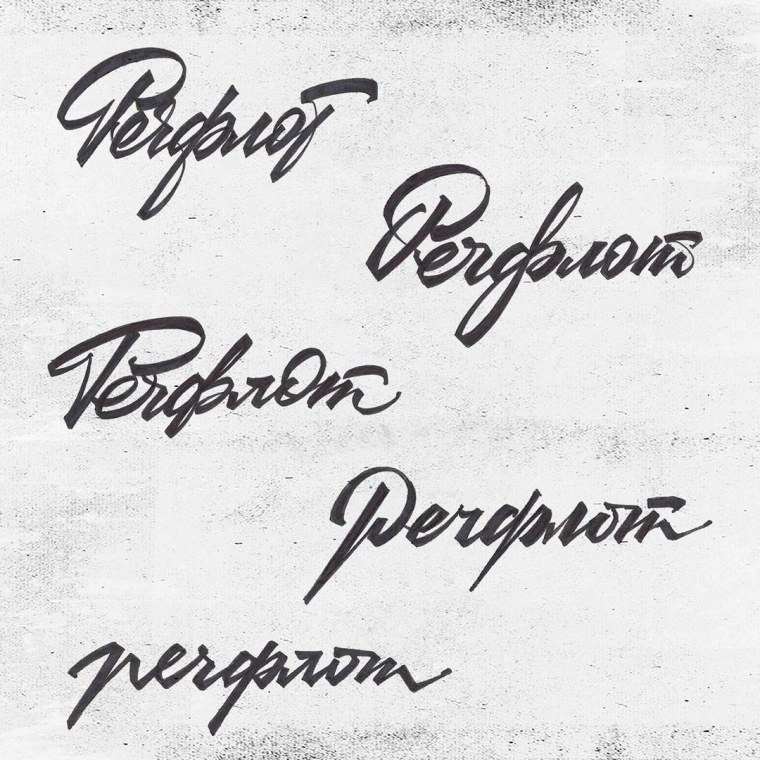 Речфлот
Речфлот
Речфлот
Речфлот
речфлот